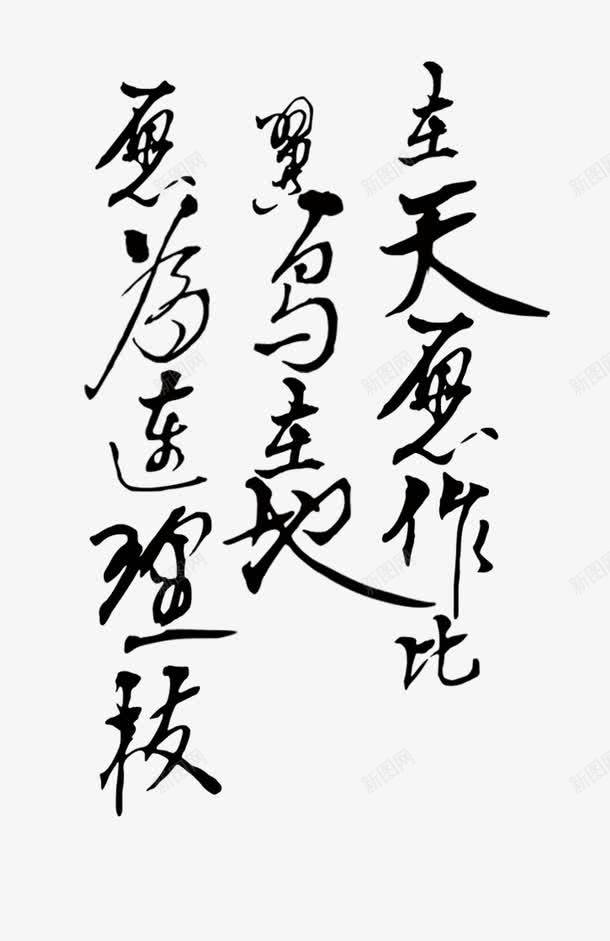 在天愿作比
翼鸟在地
愿为连理枝
新图网